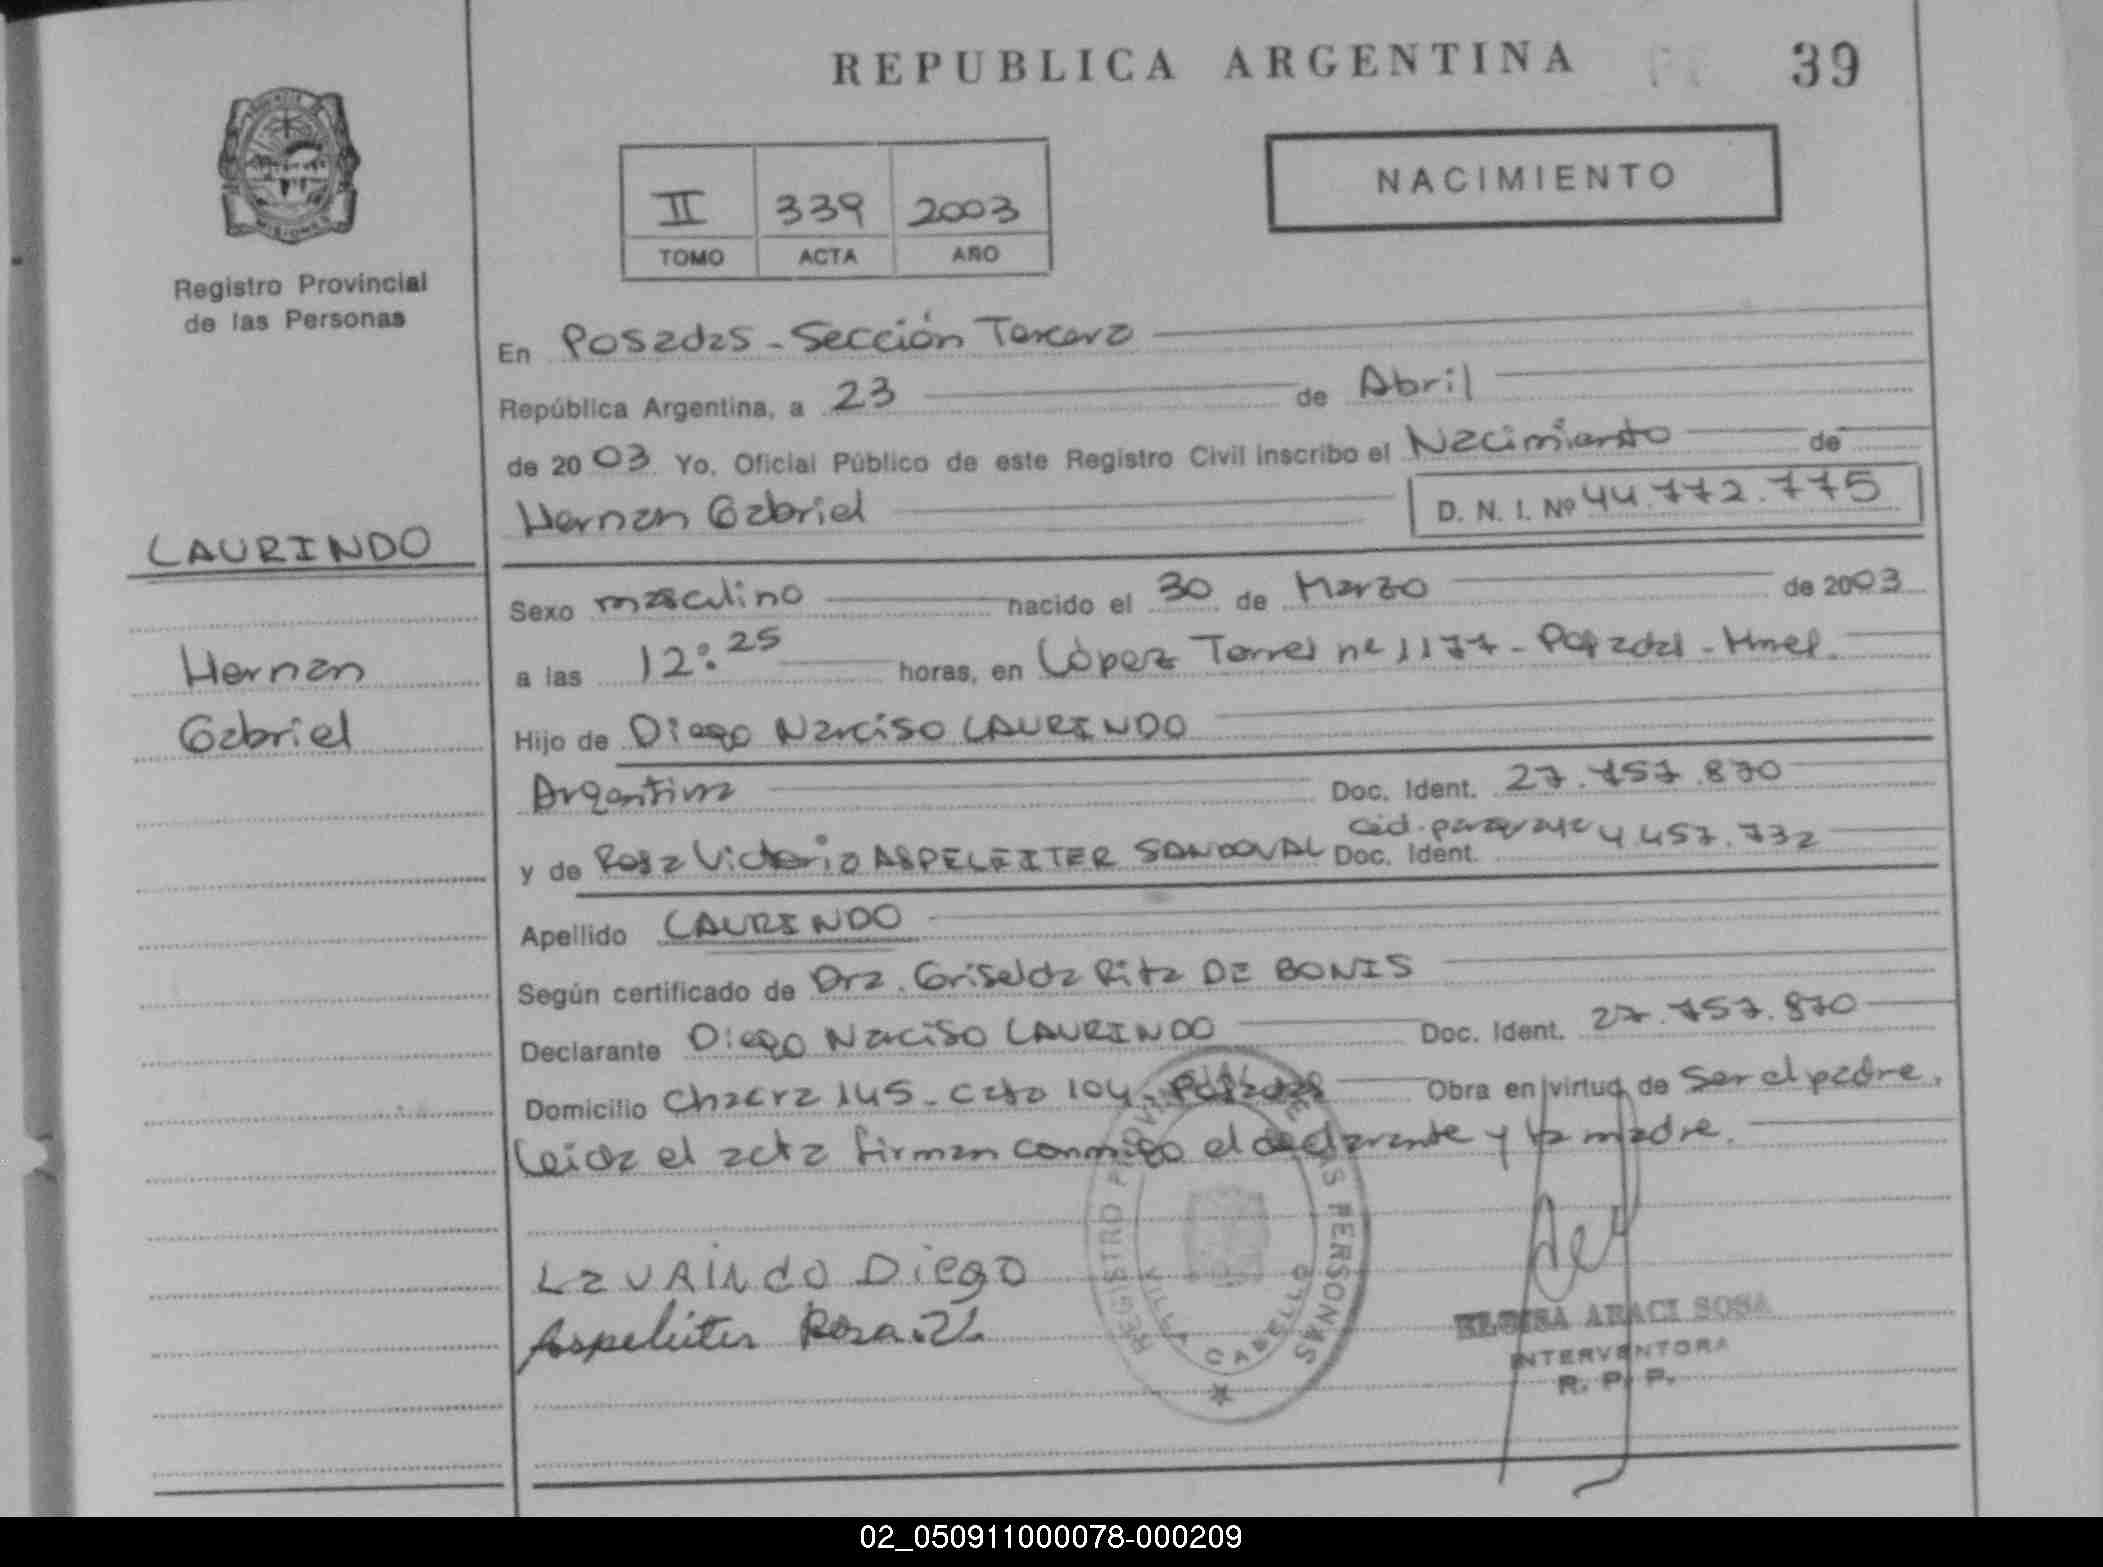 REPUBLICA ARGENTINA
39
PROVINCIA DE MISIONES
Registro Provincial
de las Personas
II 339 2003
TOMO ACTA AÑO
NACIMIENTO
En Posadas - Sección Tercera
República Argentina, a 23 de Abril
de 2003 Yo, Oficial Público de este Registro Civil inscribo el Nacimiento de
Hernan Gabriel D. N. I. Nº 44.772.775
LAURINDO
Hernan
Gabriel
Sexo masculino nacido el 30 de Marzo de 2003
a las 12:25 horas, en López Torres nº 1177 - Posadas - Mnes.
Hijo de Diego Narciso LAURINDO
Argentina Doc. Ident. 27.757.870
y de Rosa Victoria ASPELEITER SANDOVAL Doc. Ident. céd. paraguaya 4.457.732
Apellido LAURINDO
Según certificado de Dra. Griselda Rita DE BONIS
Declarante Diego Narciso LAURINDO Doc. Ident. 27.757.870
Domicilio Chacra 145 - casa 104 - Posadas Obra en virtud de ser el padre.
Leida el acta firman conmigo el declarante y la madre.
REGISTRO PROVINCIAL DE LAS PERSONAS
VILLA CABELLO
LaURINdO Diego
Aspeleiter Rosa
ELOISA ARACI SOSA
INTERVENTORA
R. P. P.
02_050911000078-000209